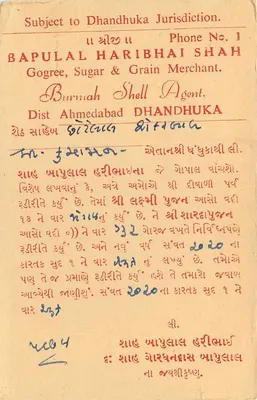 Subject to Dhandhuka Jurisdiction.
॥ શ્રીજી ॥ Phone No. 1
BAPULAL HARIBHAI SHAH
Gogree, Sugar & Grain Merchant.
Burmah Shell Agent.
Dist Ahmedabad DHANDHUKA
શેઠ સાહેબ છોટાલાલ
એતાનશ્રી ધંધુકાથી લી.
શાહ બાપુલાલ હરીભાઇના જે ગોપાલ વાંચશો.
વિશેષ લખવાનું કે, અત્રે અમોએ શ્રી દીવાળી પર્વ
રૂઢીરીતે કર્યું છે. તેમાં શ્રી લક્ષ્મી પુજન આસો વદી
૧૩ ને વાર મંગળનું કર્યું છે. ને શ્રી શારદાપુજન
આસો વદી ૦)) ને વાર ગુરૂ ગોરજ વખતે નિર્વિઘ્નપણે
રૂઢીરીતે કર્યું છે. અને નવું વર્ષ સંવત ૨૦૨૦ ના
કારતક સુદ ૧ ને વાર નું લખ્યું છે. તમોએ
પણ તે જ પ્રમાણે રૂઢીરીતે કર્યું હશે તે તમારા જવાબ
આવ્યેથી જાણીશું. સંવત ૨૦૨૦ ના કારતક સુદ ૧ ને
વાર
લી.
શાહ બાપુલાલ હરીભાઈ
દ: શાહ ગોરધનદાસ બાપુલાલ
ના જયશ્રીકૃષ્ણ.